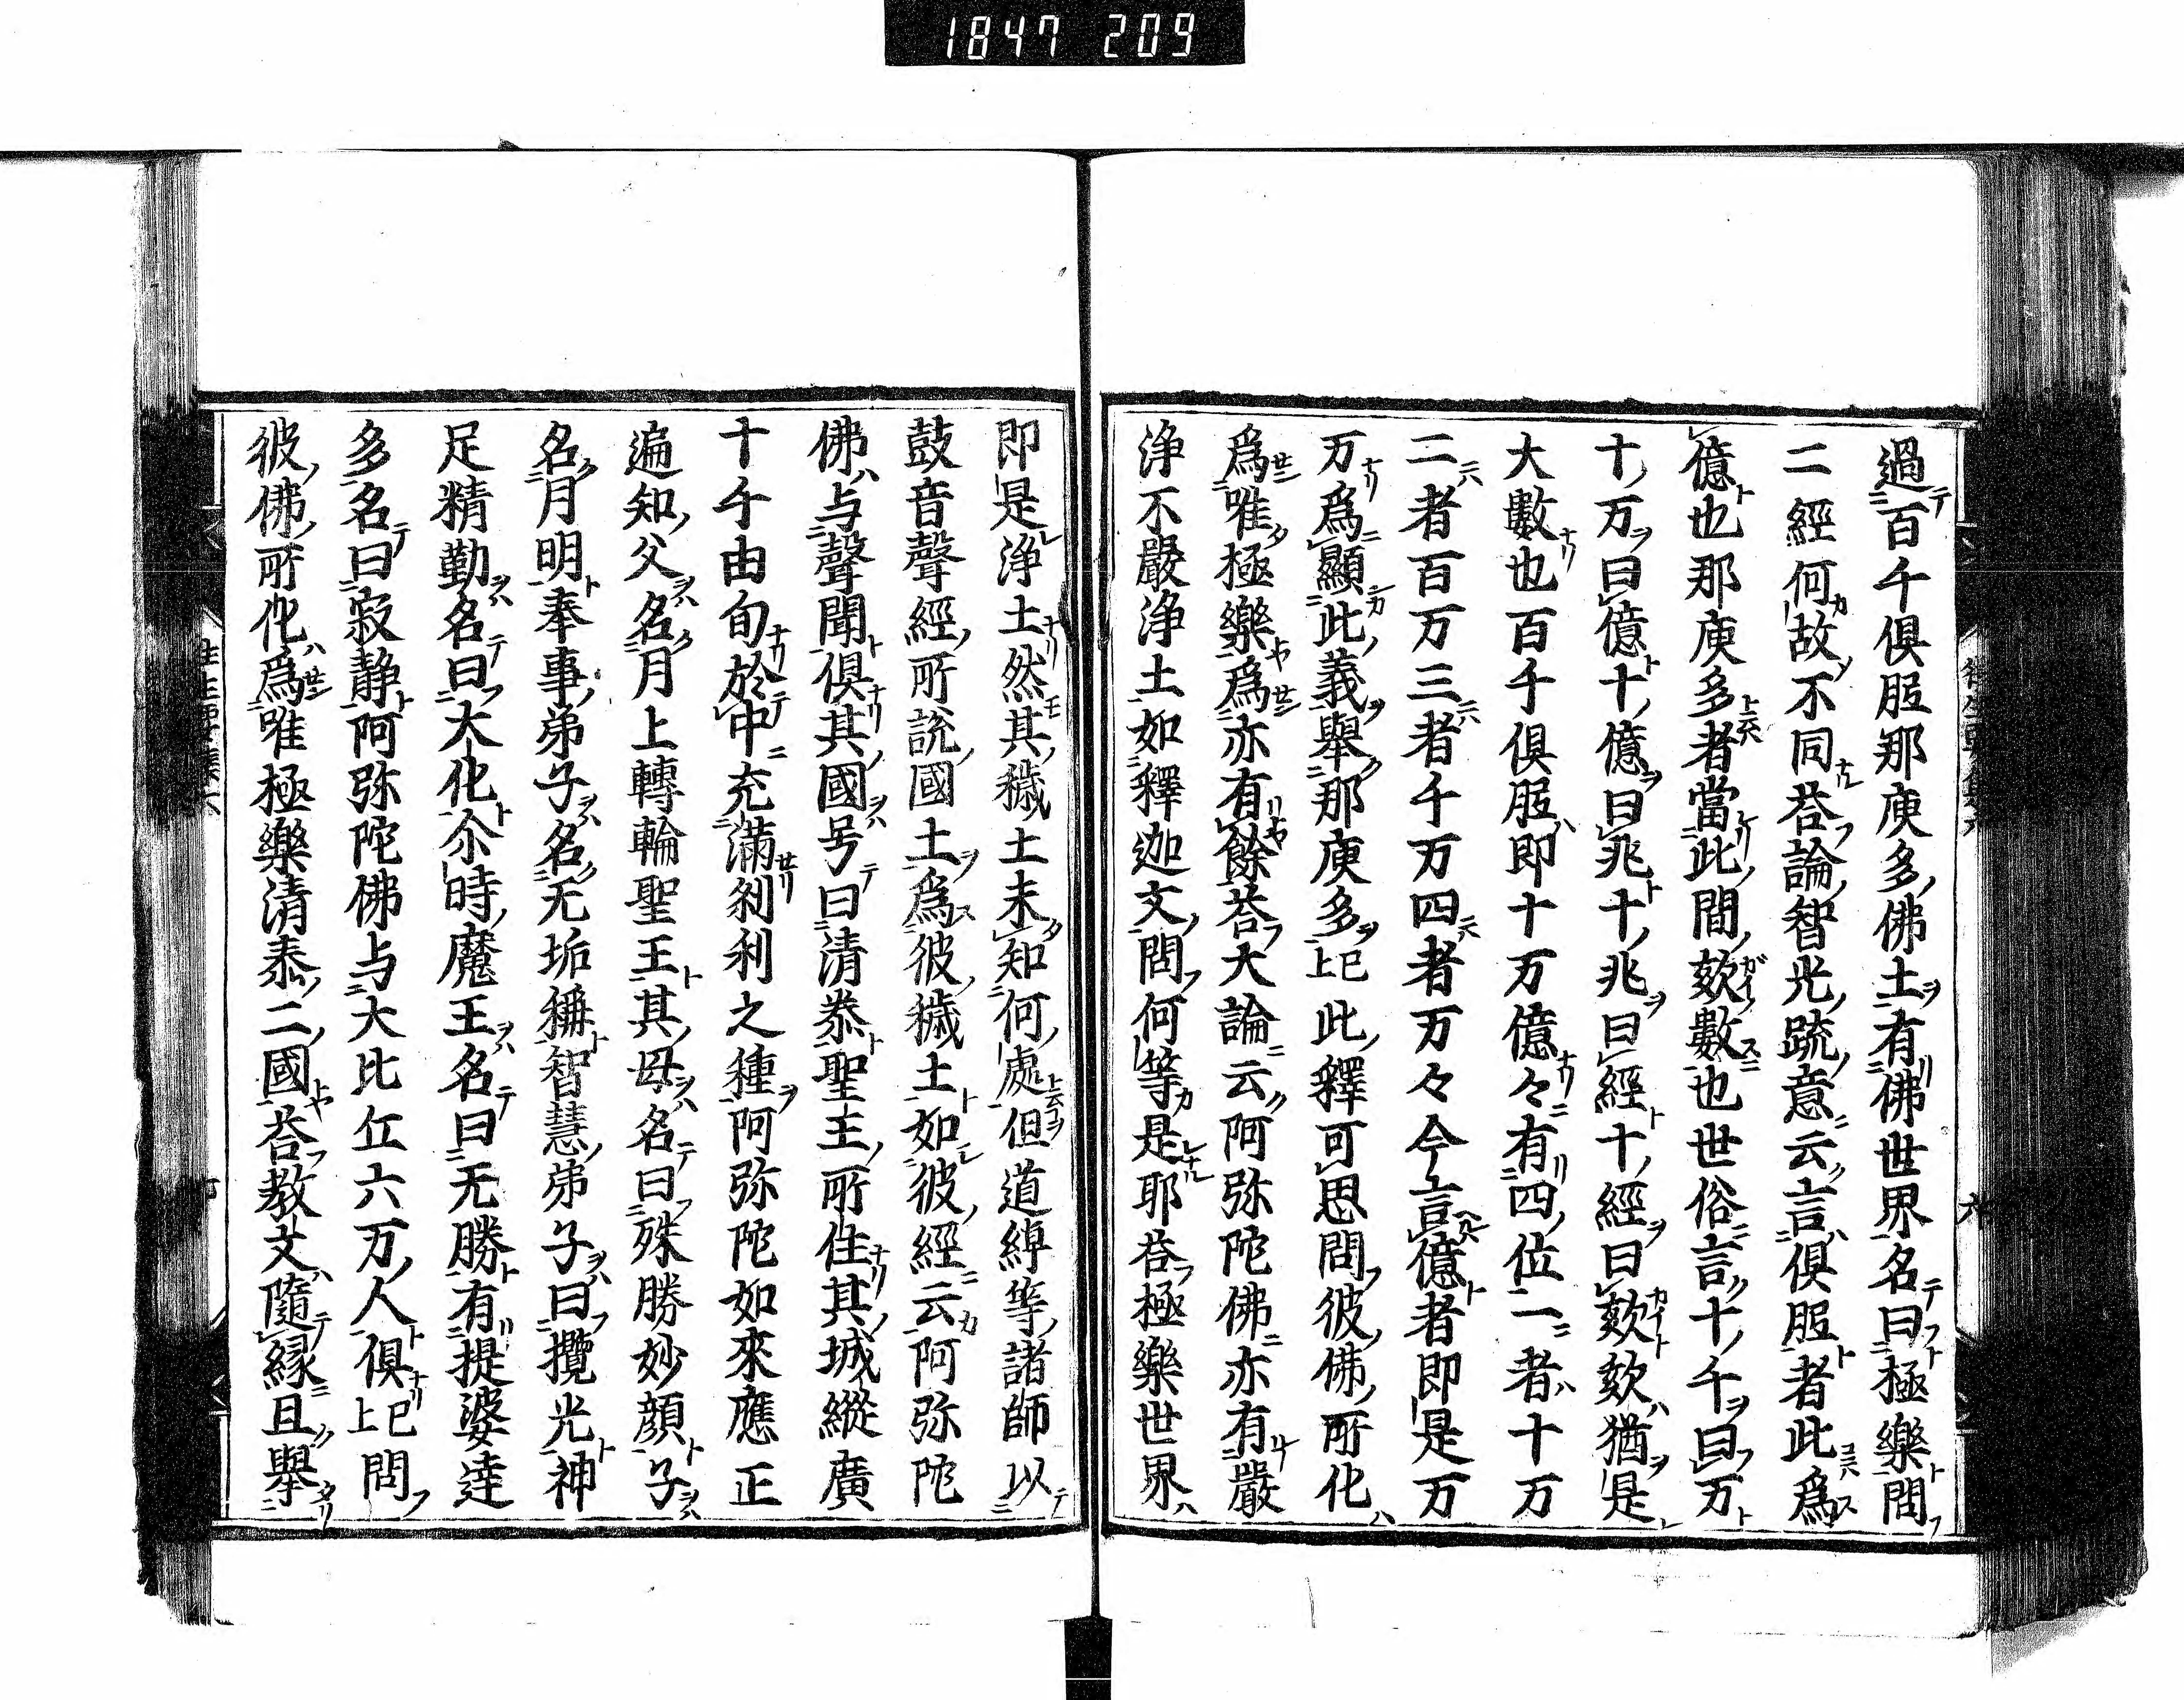 1847 209
過百千俱胝那庾多佛土有佛世界名曰極樂問
二經何故不同荅論智光疏意云言俱胝者此爲
億也那庾多者當此間欬數也世俗言十千曰万
十万曰億十億曰兆十兆曰經十經曰欬欬猶是
大數也百千俱胝即十万億々有四位一者十万
二者百万三者千万四者万々今言億者即是万
万爲顯此義舉那庾多已上此釋可思問彼佛所化
爲唯極樂爲亦有餘荅大論云阿弥陀佛亦有嚴
浄不嚴浄土如釋迦文問何等是耶荅極樂世界
即是浄土然其穢土未知何處但道綽等諸師以
鼓音聲經所説國土爲彼穢土如彼經云阿弥陀
佛与聲聞俱其國号曰清泰聖王所住其城縱廣
十千由旬於中充滿刹利之種阿弥陀如來應正
遍知父名月上轉輪聖王其母名曰殊勝妙顔子
名月明奉事弟子名无垢稱智慧弟子曰攬光神
足精勤名曰大化尒時魔王名曰无勝有提婆達
多名曰寂静阿弥陀佛与大比丘六万人俱已上問
彼佛所化爲唯極樂清泰二國荅教文隨縁且舉